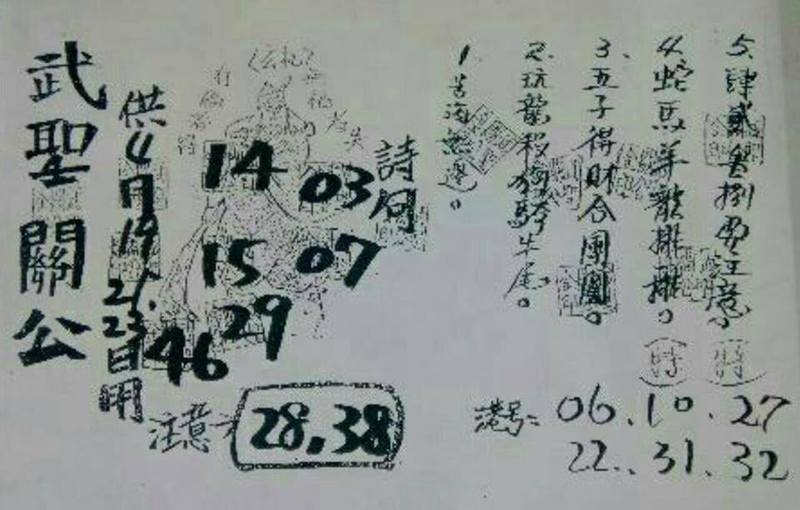 武聖關公
供4月19
21.23日用
14 03
15 07
46 29
注意
28,38
詩句
1.苦海無邊。
2.玩龍殺狗騎牛尾。
3.五子得財合團圓。
4.蛇馬羊龍排排。(時)
5.肆貳 捌要注意。(時)
港号: 06.10.27
22.31.32